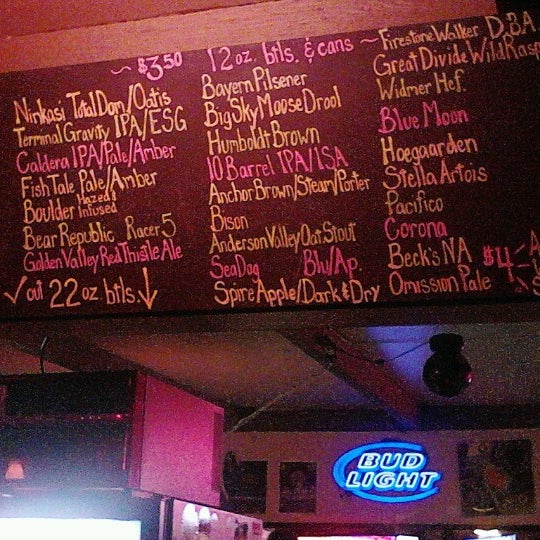 ~ $3.50 12 oz. btls. & cans ~
Ninkasi Total Dom/Oatis
Terminal Gravity IPA/ESG
Caldera IPA/Pale/Amber
Fish Tale Pale/Amber
Boulder Hazed Infused
Bear Republic Racer 5
Golden Valley Red Thistle Ale
✓ out 22 oz. btls. ↓
Bayern Pilsener
Big Sky Moose Drool
Humboldt Brown
10 Barrel IPA/ISA
Anchor Brown/Steam/Porter
Bison
Anderson Valley Oat Stout
Sea Dog Blu/Ap.
Spire Apple/Dark & Dry
Firestone Walker D.B.A.
Great Divide Wild Rasp
Widmer Hef.
Blue Moon
Hoegaarden
Stella Artois
Pacifico
Corona
Beck's NA
Omission Pale
$4
BUD
LIGHT